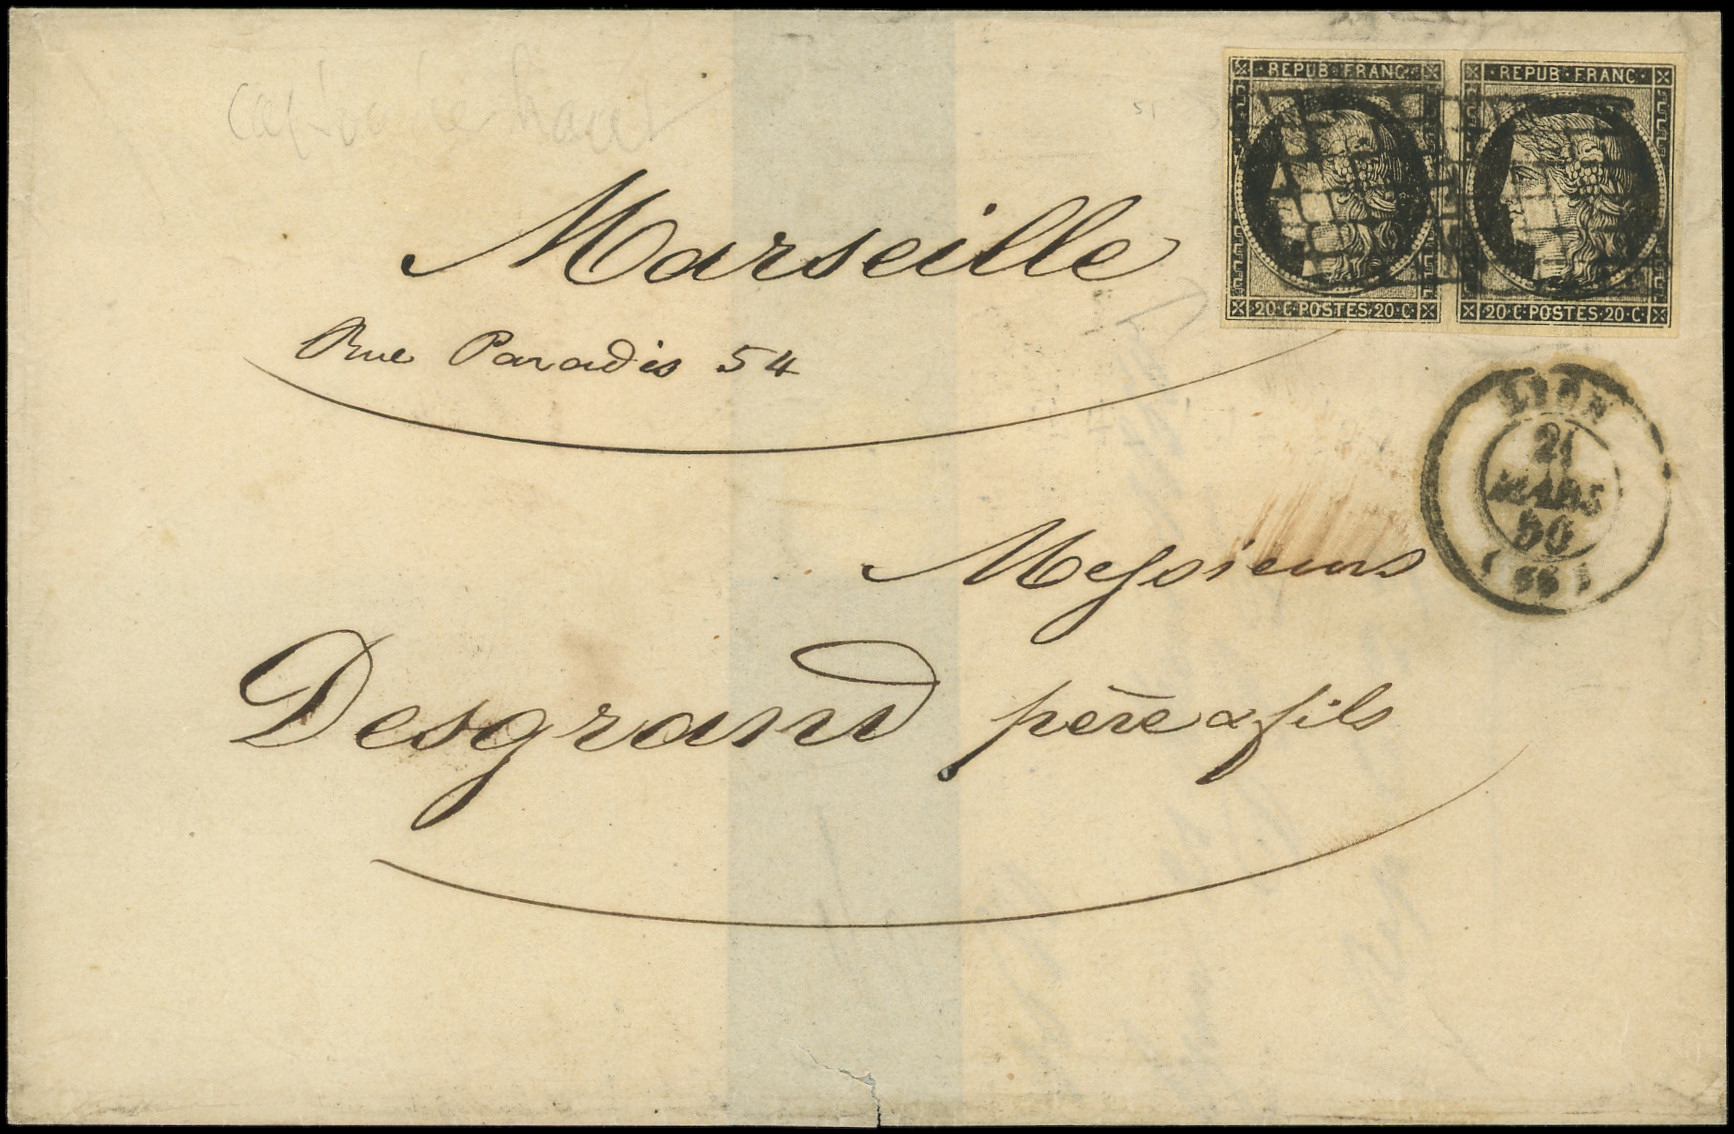 REPUB·FRANC· REPUB·FRANC·
20·C·POSTES·20·C· 20·C·POSTES·20·C·
Marseille
Rue Paradis 54
LYON
21
MARS
50
(68)
Messieurs
Desgrand père & fils